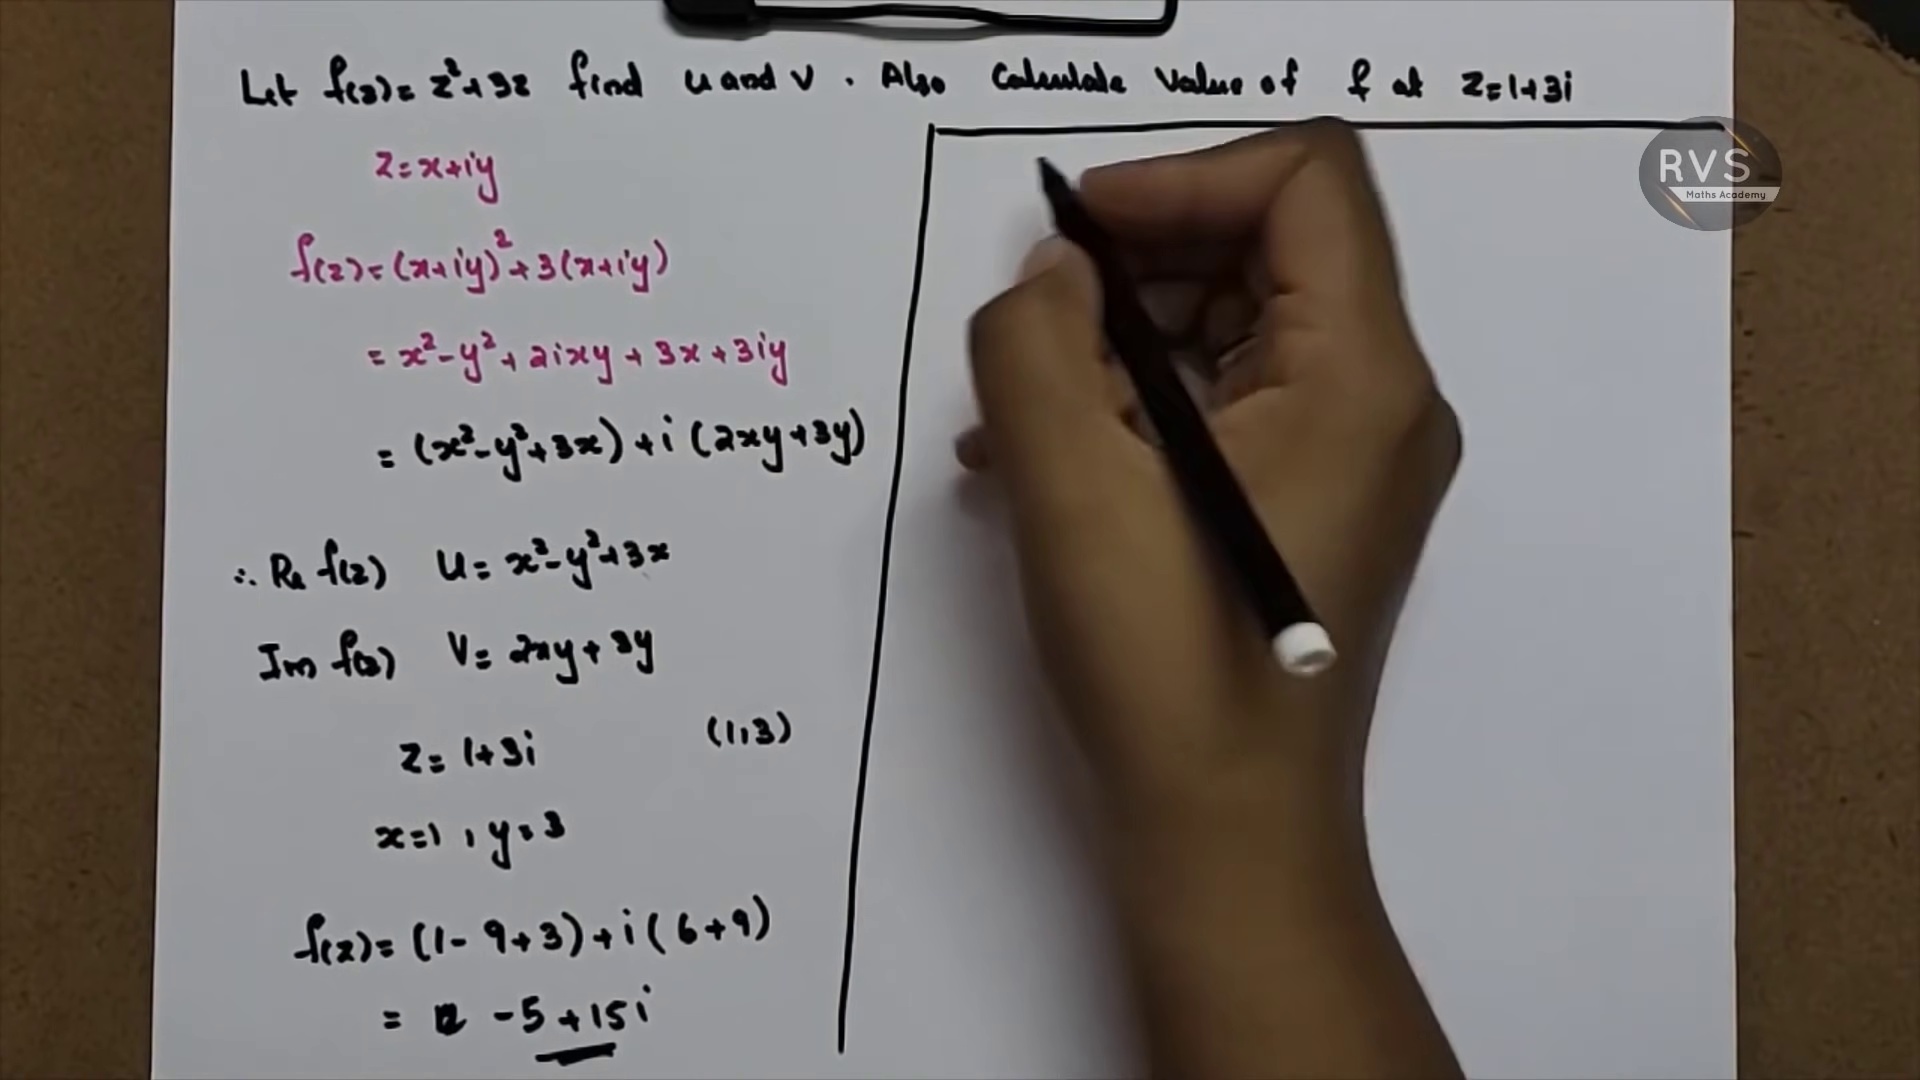 Let f(z)= z²+3z find u and v. Also Calculate Value of f at z=1+3i
RVS
Maths Academy
z=x+iy
f(z)=(x+iy)²+3(x+iy)
= x²-y²+2ixy+3x+3iy
= (x²-y²+3x)+i(2xy+3y)
∴ Re f(z) u= x²-y²+3x
Im f(z) v= 2xy+3y
z= 1+3i (1,3)
x=1, y=3
f(z)= (1-9+3)+i(6+9)
= -5+15i